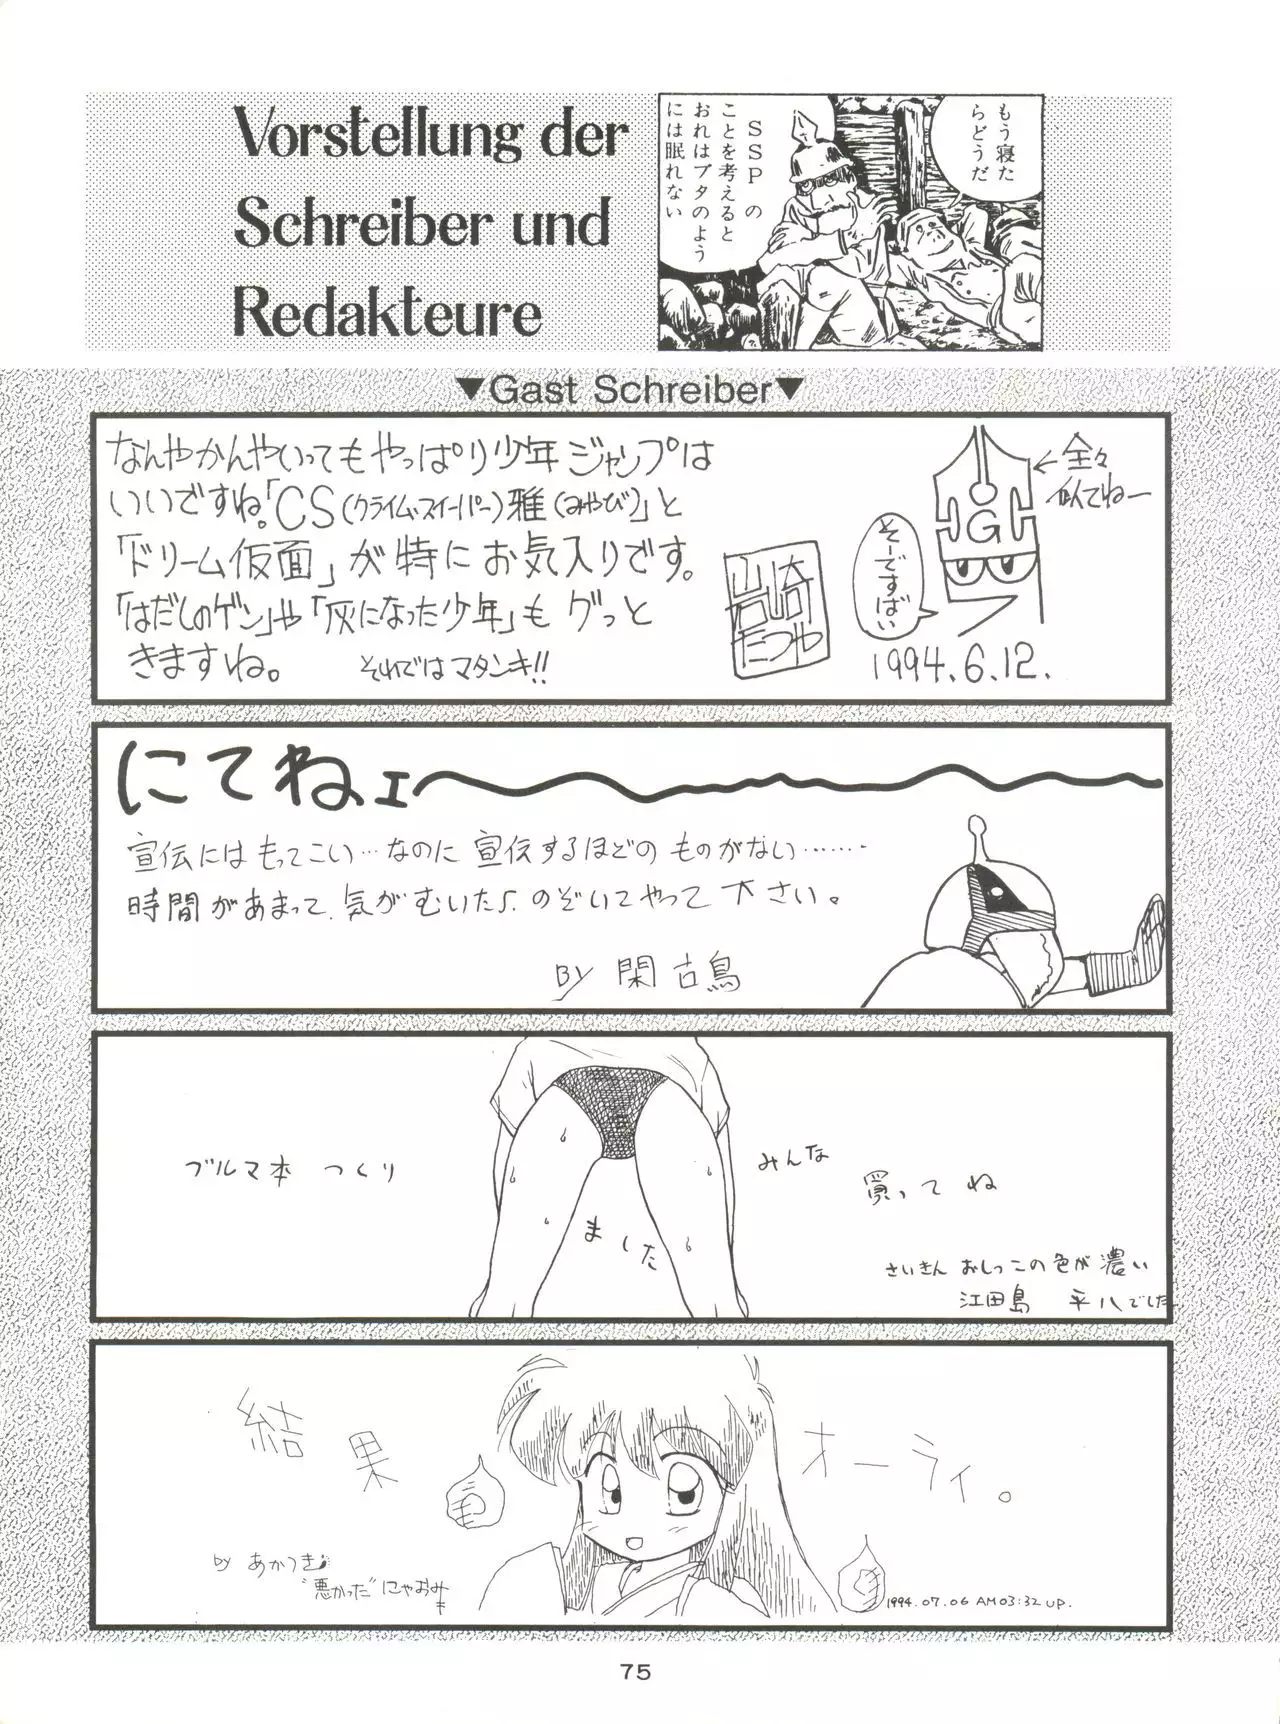 Vorstellung der
Schreiber und
Redakteure
もう寝た
らどうだ
SSPの
ことを考えると
おれはブタのよう
には眠れない
▼Gast Schreiber▼
なんやかんやいってもやっぱり少年ジャンプは
いいですね。「CS(クライム・スイーパー)雅(みやび)」と
「ドリーム仮面」が特にお気入りです。
「はだしのゲン」や「灰になった少年」もグっと
きますね。 それではマタンキ!!
山崎
たつや
G
←全々
似てねー
そーですばい
1994.6.12.
にてねェ〜
宣伝にはもってこい…なのに宣伝するほどのものがない……
時間があまって、気がむいたら、のぞいてやって下さい。
BY 閑古鳥
ブルマ本 つくり
ました
みんな
買ってね
さいきん おしっこの色が濃い
江田島 平八でした
結果
オーライ。
by あかつき
"悪かった"にゃおみ
1994.07.06 AM03:32 UP.
75